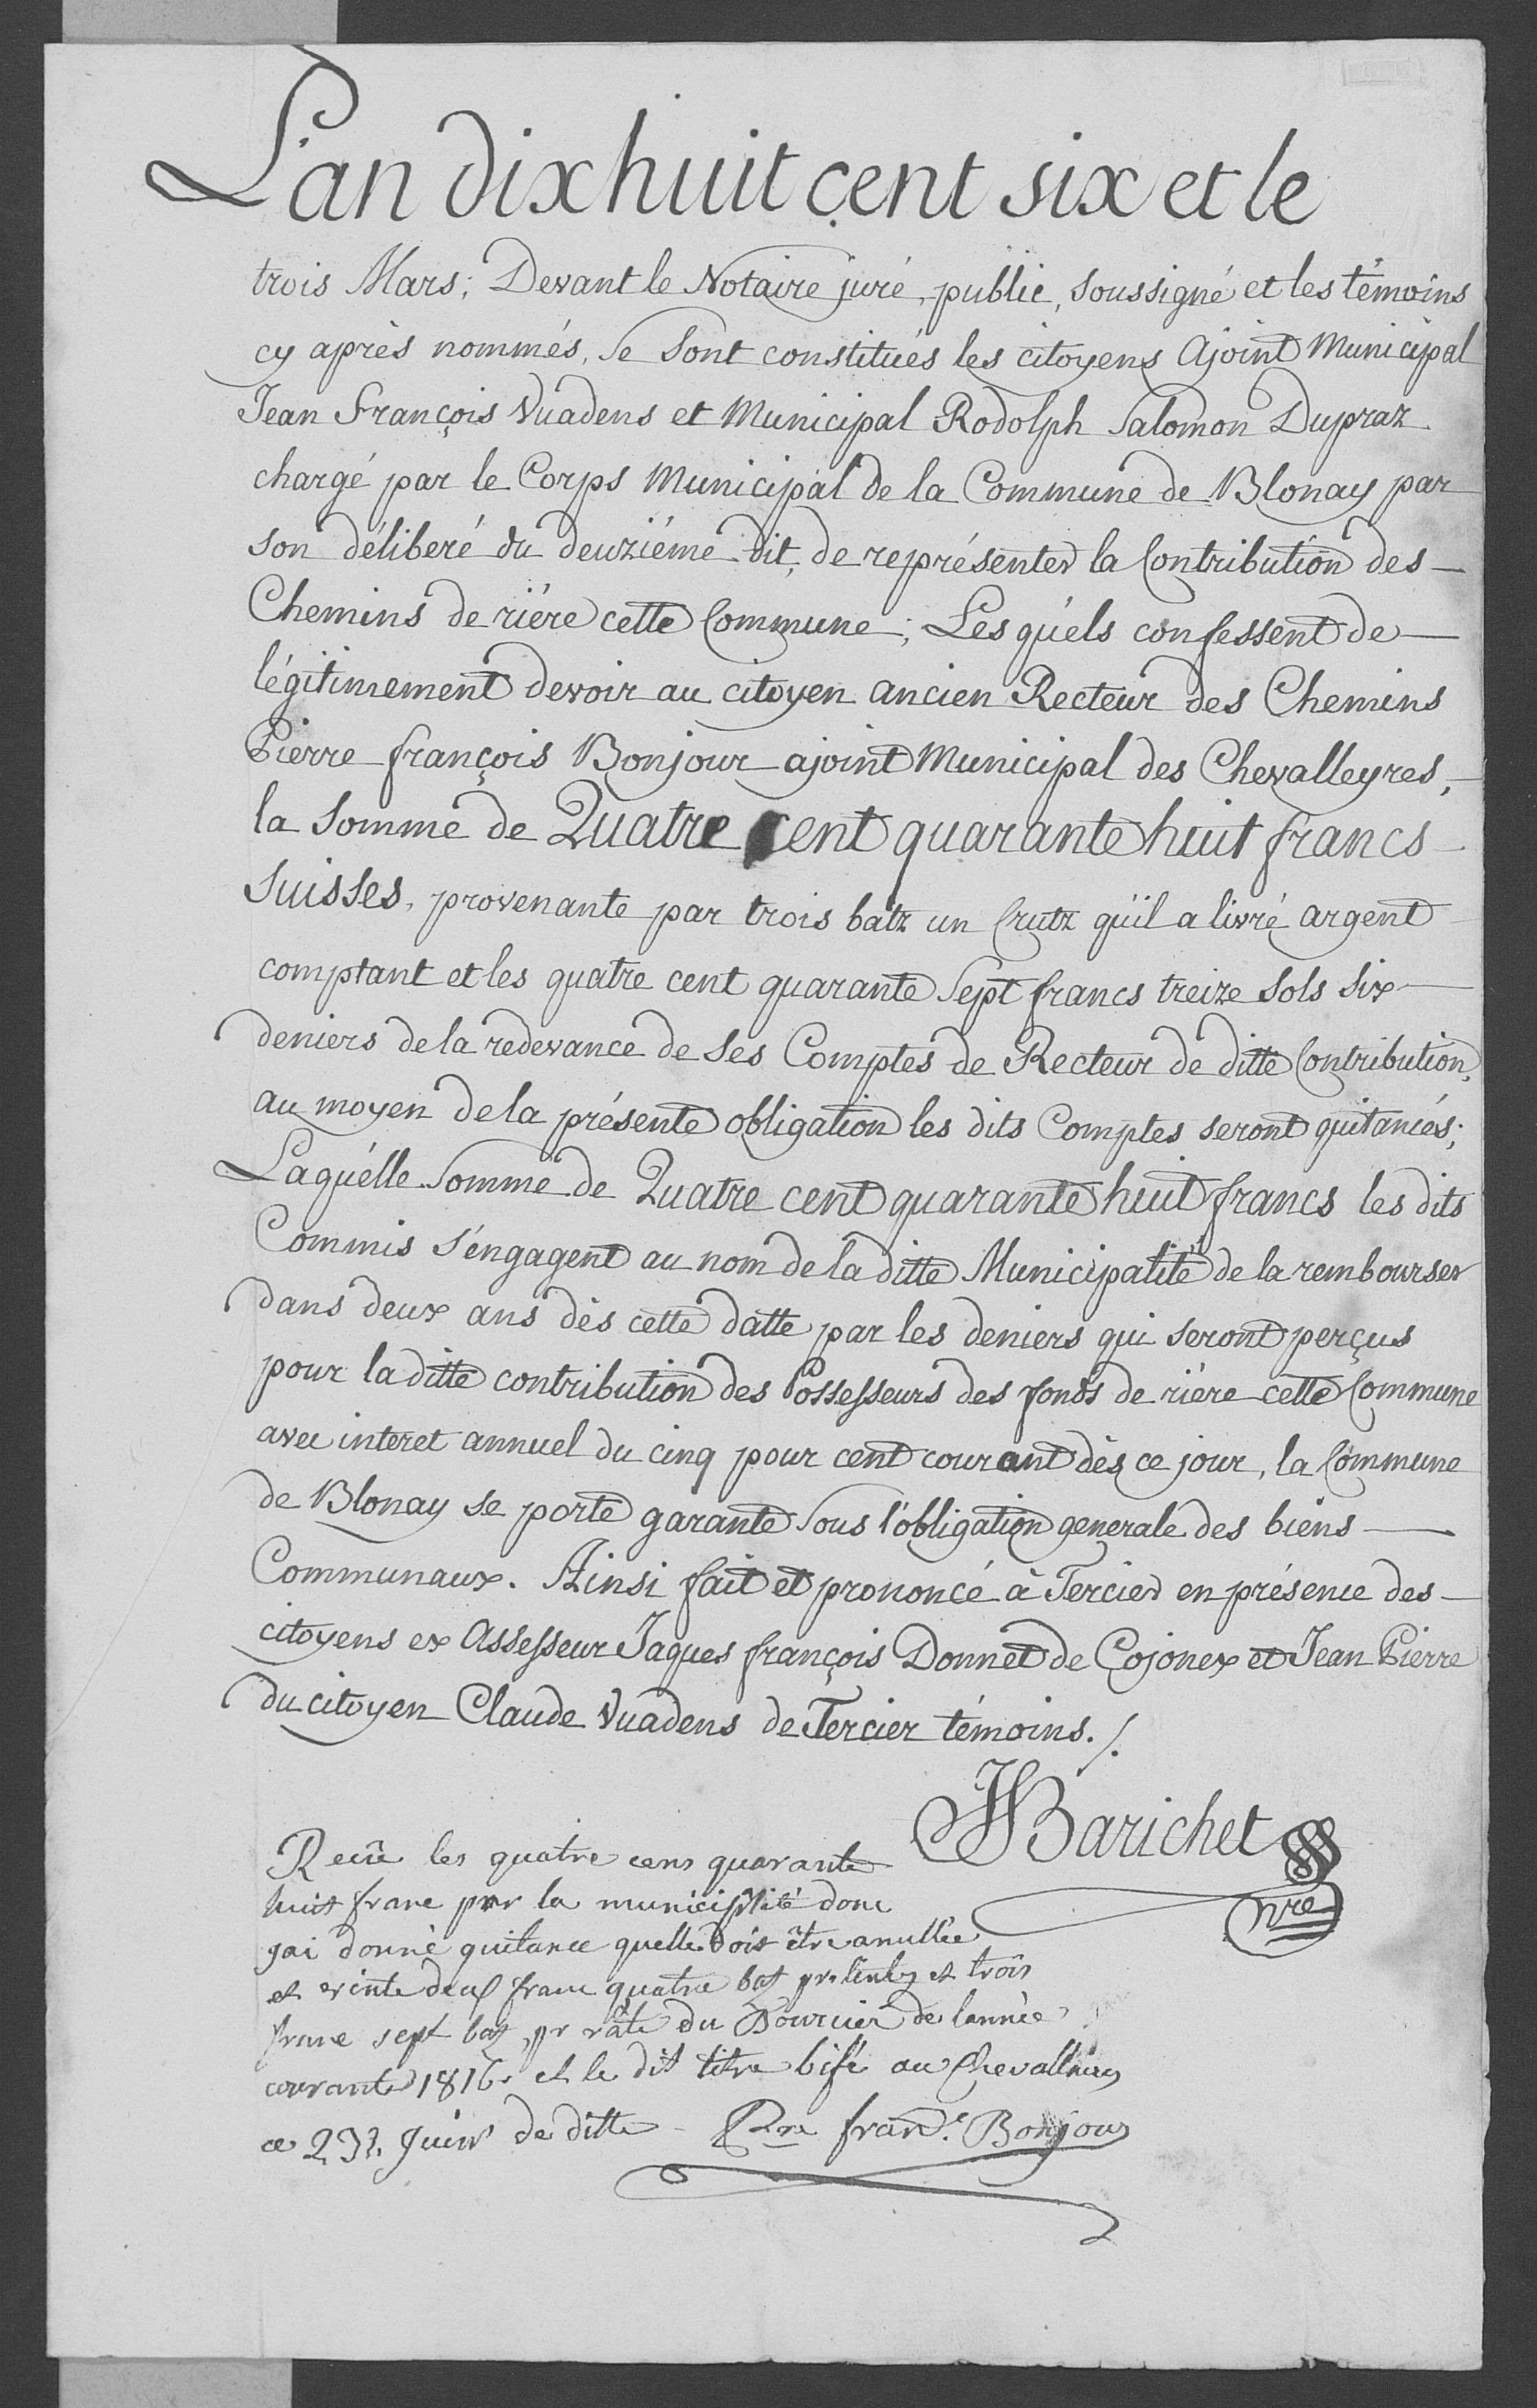 L'an dixhuit cent six et le
trois Mars; Devant le Notaire juré, public, soussigné et les témoins
cy après nommés, Se Sont constitués les citoyens Ajoint Municipal
Jean François Vuadens et Municipal Rodolph Salomon Dupraz
chargé par le Corps Municipal de la Commune de Blonay par
son déliberé du deuziéme dit, de représenter la Contribution des
Chemins de riére cette Commune; Les quels confessent de
légitimement devoir au citoyen ancien Recteur des Chemins
Pierre françois Bonjour ajoint Municipal des Chevalleyres,
la Somme de Quatre cent quarante huit francs
Suisses, provenante par trois batz un Crutz qu'il a livré argent
comptant et les quatre cent quarante Sept francs treize Sols Six
deniers de la redevance de Ses Comptes de Recteur de ditte Contribution,
au moyen de la présente obligation les dits Comptes seront quitancés;
Laquélle Somme de Quatre cent quarante huit francs les dits
Commis S'engagent au nom de la ditte Municipalité de la rembourser
dans deux ans dès cette datte par les deniers qui seront perçus
pour la ditte contribution des Possesseurs des fonds de riére cette Commune
avec interet annuel du cinq pour cent courant dès ce jour, la Commune
de Blonay se porte garante Sous l'obligation generale des biens
Communaux. Ainsi fait et prononcé à Tercier en présence des
citoyens ex Assesseur Jaques françois Donnet de Cojonex et Jean Pierre
du citoyen Claude Vuadens de Tercier témoins./.
Barichet
nre
Recûe les quatre cens quarante
huit franc par la municiplité donc
jai donné quitance quelle dois être anullée
et vinte deux franc quatre batz pr et trois
franc sept batz pr râte du Boursier de lannée
courante 1816. et le dit titre bifé au Chevalleires
ce 23. Juin de ditte Pre franc. Bonjour